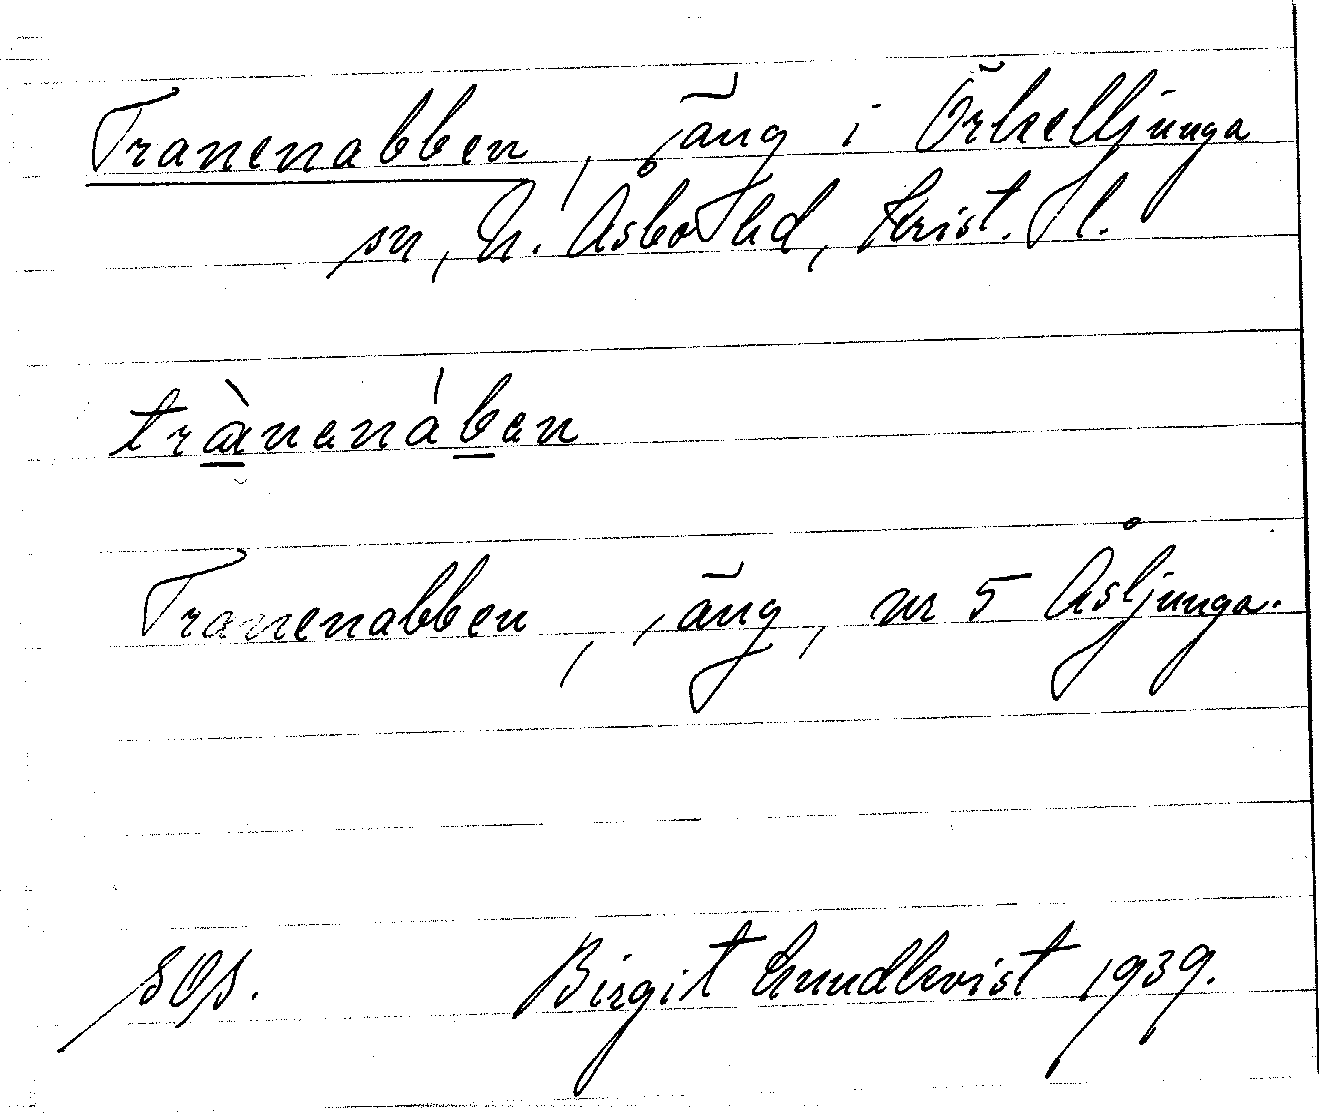 Tranenabben, äng i Örkelljunga
sn, N. Åsbo hd, Krist. l.
trànanában
Tranenabben, äng, nr 5 Åsljunga.
sOs. Birgit Lundkvist 1939.